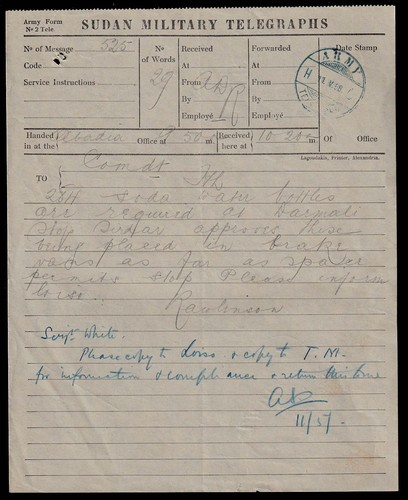 Army Form
No 2 Tele
SUDAN MILITARY TELEGRAPHS
No of Message 525
Code
Service Instructions
No
of Words
29
Received
At
From ADR
By
Employé
Forwarded
At
From
By
Employé
Date Stamp
ARMY
H
TEL
Handed in at the Abadia Office at 9 50 m Received here at 10 20 m Of Office
Lagoudakis, Printer, Alexandria.
Comdt
TO
264 soda water bottles
are required at Darmali
stop Sirdar approves these
being placed in brake
vans as far as space
permits stop Please inform
Rawlinson
Sergt White.
Please copy to & copy to T. M.
for information & compliance & return this
11/5/-